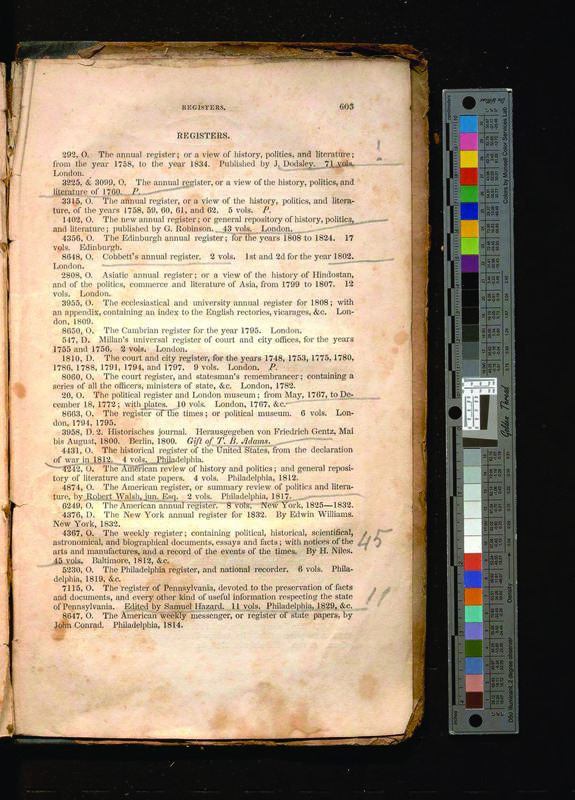 REGISTERS. 603
REGISTERS.
292, O. The annual register; or a view of history, politics, and literature;
from the year 1758, to the year 1834. Published by J. Dodsley. 71 vols.
London.
3225, & 3099, O. The annual register, or a view of the history, politics, and
literature of 1760. P.
3315, O. The annual register, or a view of the history, politics, and litera-
ture, of the years 1758, 59, 60, 61, and 62. 5 vols. P.
1402, O. The new annual register; or general repository of history, politics,
and literature; published by G. Robinson. 43 vols. London.
4356, O. The Edinburgh annual register; for the years 1808 to 1824. 17
vols. Edinburgh.
8648, O. Cobbett's annual register. 2 vols. 1st and 2d for the year 1802.
London.
2808, O. Asiatic annual register; or a view of the history of Hindostan,
and of the politics, commerce and literature of Asia, from 1799 to 1807. 12
vols. London.
3955, O. The ecclesiastical and university annual register for 1808; with
an appendix, containing an index to the English rectories, vicarages, &c. Lon-
don, 1809.
8650, O. The Cambrian register for the year 1795. London.
547, D. Millan's universal register of court and city offices, for the years
1755 and 1756. 2 vols. London.
1810, D. The court and city register, for the years 1748, 1753, 1775, 1780,
1786, 1788, 1791, 1794, and 1797. 9 vols. London. P.
8060, O. The court register, and statesman's remembrancer; containing a
series of all the officers, ministers of state, &c. London, 1782.
20, O. The political register and London museum; from May, 1767, to De-
cember 18, 1772; with plates. 10 vols. London, 1767, &c.
8663, O. The register of the times; or political museum. 6 vols. Lon-
don, 1794, 1795.
3958, D. 2. Historisches journal. Herausgegeben von Friedrich Gentz, Mai
bis August, 1800. Berlin, 1800. Gift of T. B. Adams.
4431, O. The historical register of the United States, from the declaration
of war in 1812. 4 vols. Philadelphia.
4242, O. The American review of history and politics; and general reposi-
tory of literature and state papers. 4 vols. Philadelphia, 1812.
4874, O. The American register, or summary review of politics and litera-
ture, by Robert Walsh, jun. Esq. 2 vols. Philadelphia, 1817.
6249, O. The American annual register. 8 vols. New York, 1825—1832.
4376, D. The New York annual register for 1832. By Edwin Williams.
New York, 1832.
4367, O. The weekly register; containing political, historical, scientifical,
astronomical, and biographical documents, essays and facts; with notices of the
arts and manufactures, and a record of the events of the times. By H. Niles.
45 vols. Baltimore, 1812, &c.
45
5230, O. The Philadelphia register, and national recorder. 6 vols. Phila-
delphia, 1819, &c.
7115, O. The register of Pennsylvania, devoted to the preservation of facts
and documents, and every other kind of useful information respecting the state
of Pennsylvania. Edited by Samuel Hazard. 11 vols. Philadelphia, 1829, &c.
11
8647, O. The American weekly messenger, or register of state papers, by
John Conrad. Philadelphia, 1814.
Colors by Munsell Color Services Lab
Golden Thread
Density